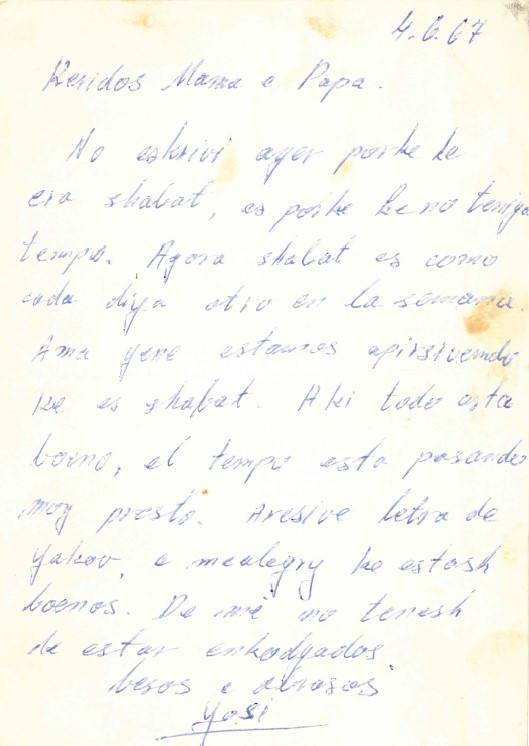 4.6.67
Keridos Mama e Papa.
No eskrivi ayer porke ke
era shabat, es porke ke no teniya
tempo. Agora shabat es como
cada diya otro en la semana.
Ama yene estamos apirsivendo
ke es shabat. Aki todo esta
boeno, el tempo esta pasando
moy presto. Aresivi letra de
Yakov, e mealegry ke estash
boenos. De mi no tenesh
de estar enkadyados
besos e abrasos
Yosi